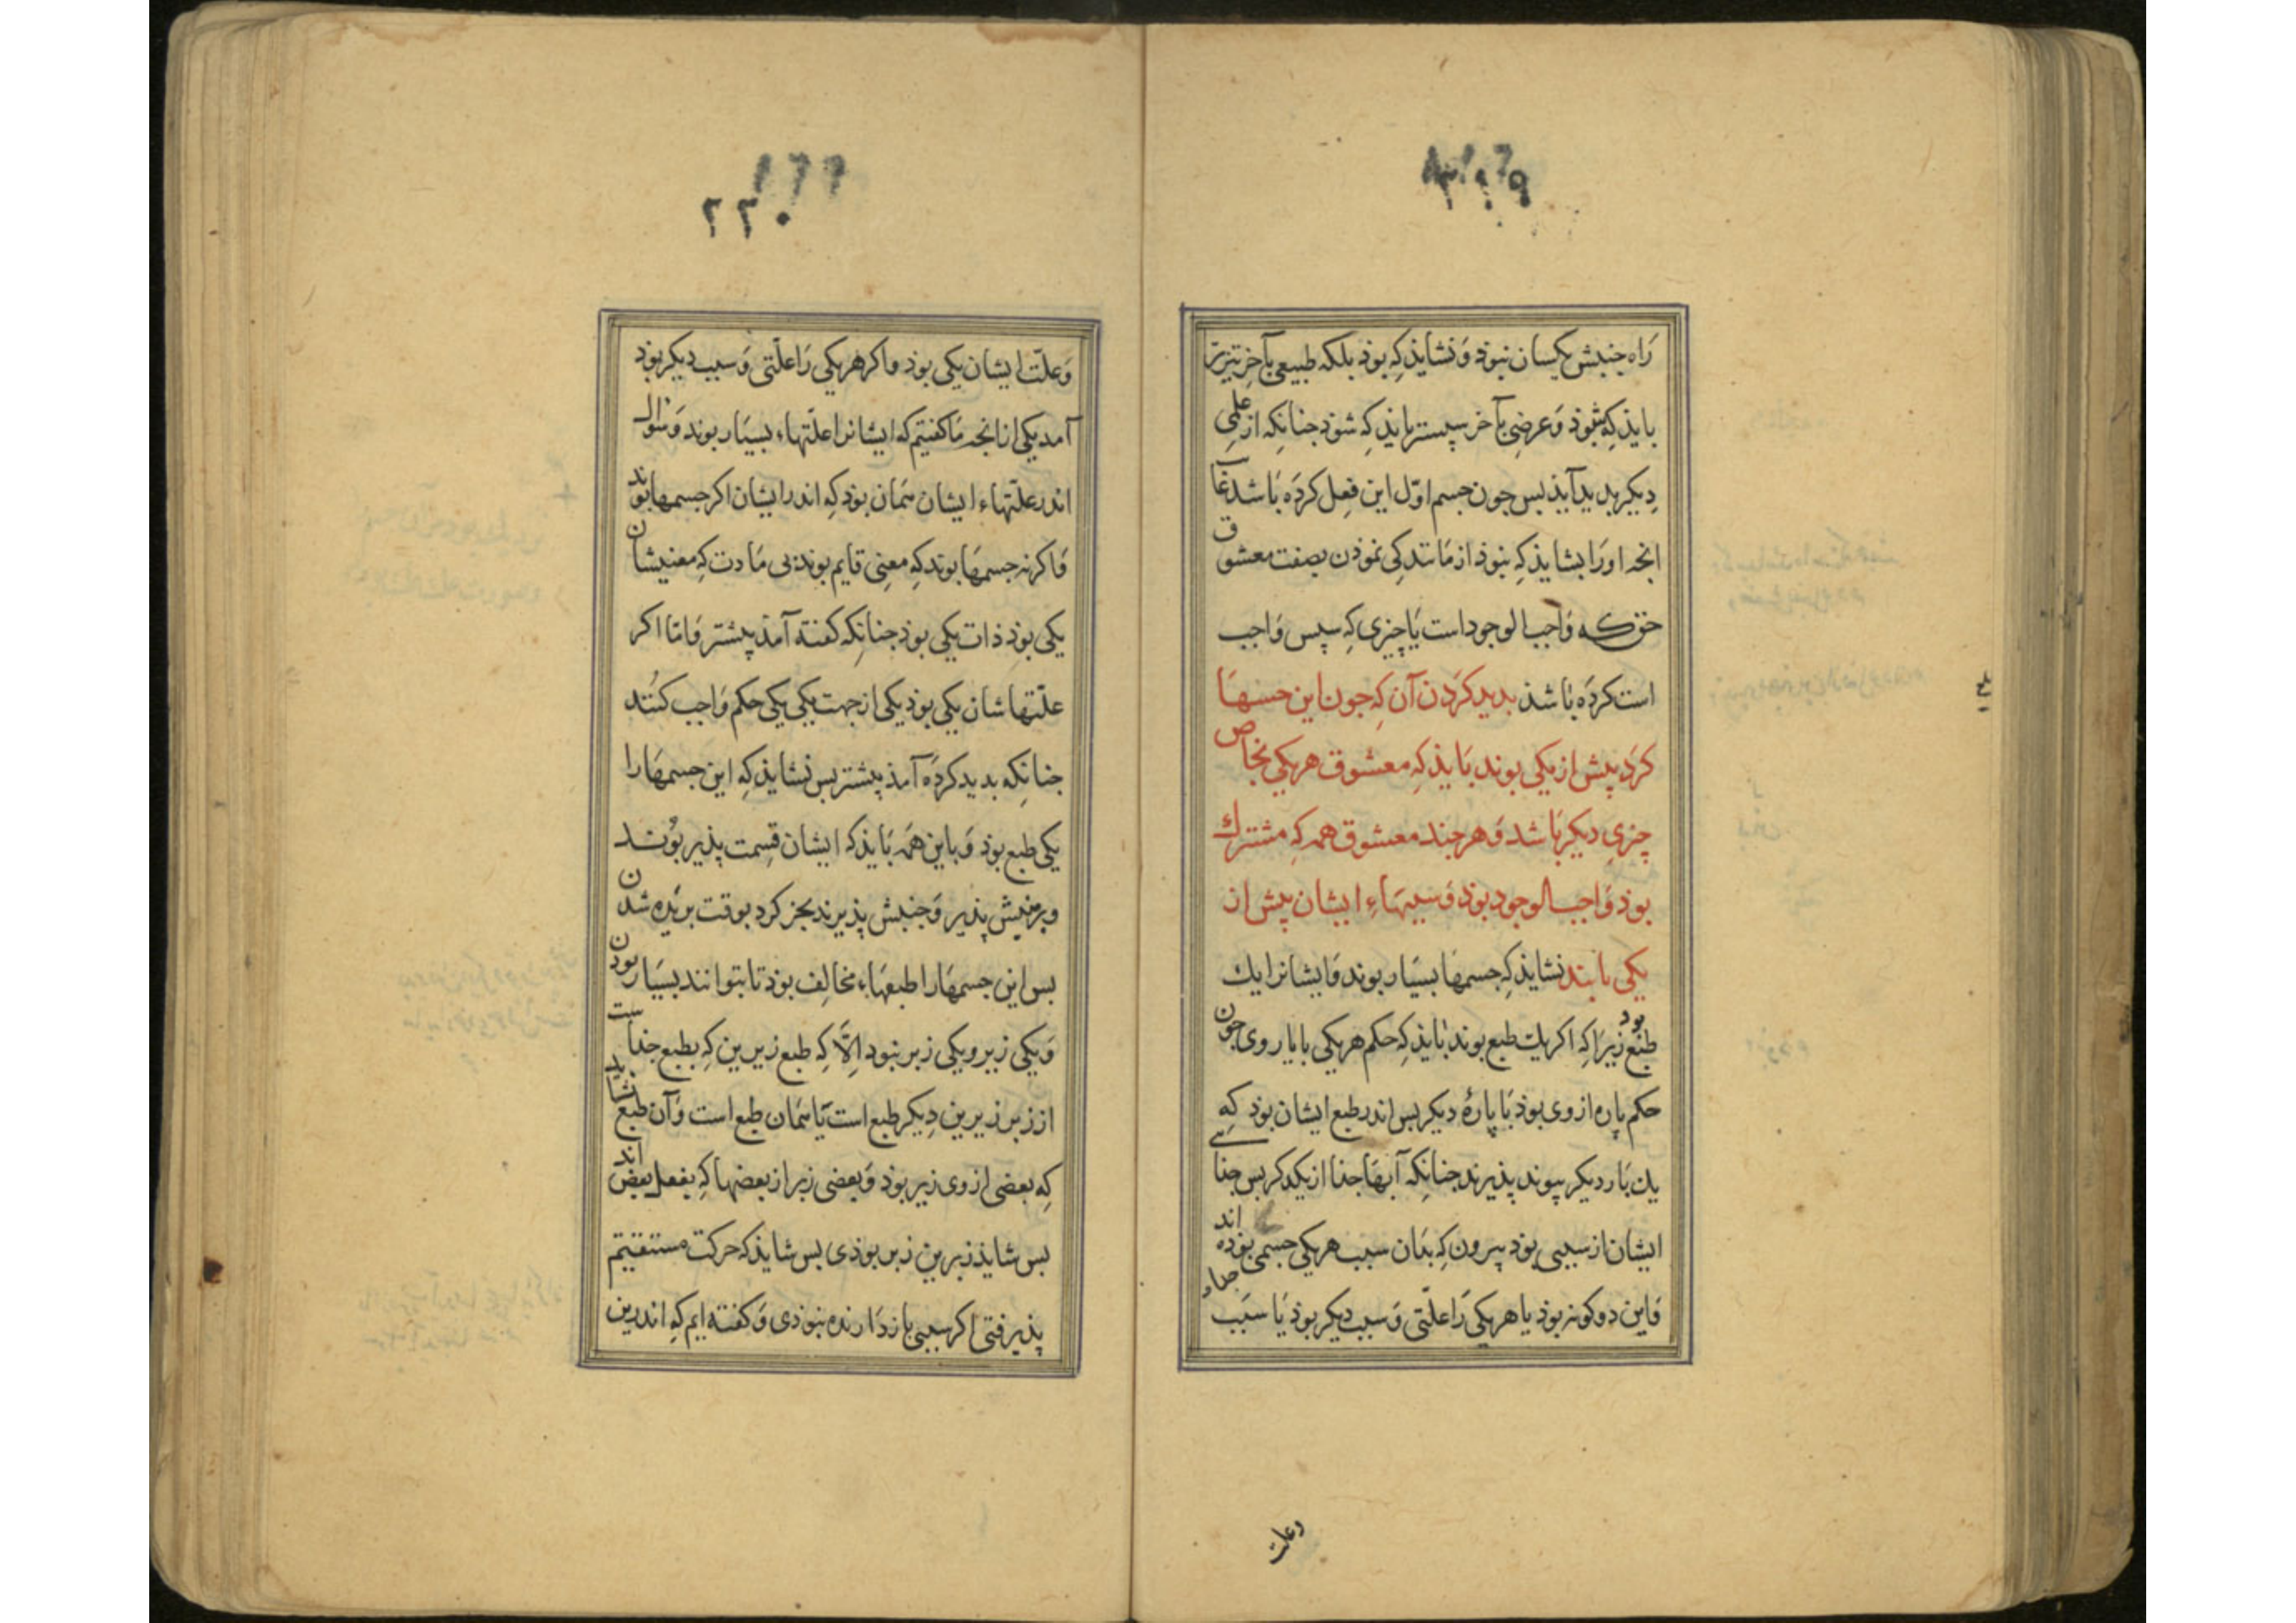 راه جنبش یکسان نبوذ وَنشایذ کِه بوذ بلکه طبیعی بآخر تیزتر
بایذ کِه شوذ وَعرضی بآخر سپستر بایذ کِه شوذ جنانکه از علمی
دیکر بدید آیذ بس جون جسم اوّل این فِعل کرده باشد
انجه اورا بشایذ کِه نبوذ از مانندکی نموذن بصفت معشوق
حق که واجب الوجود است یا چیزی کِه سپس واجب
است کرده باشذ بدید کردن آن کِه جون این جسمها
کرد پیش از یکی بوند بایذ کِه معشوق هریکی بخاص
چیزی دیکر باشد وَهرجند معشوق همه کِه مشترك
بوذ وَاجب الوجود بوذ وَسببهاءِ ایشان پیش از
یکی باشند نشایذ کِه جسمها بسیار بوند وَایشانرا یك
طبع بوذ زیرا کِه اکر یك طبع بوند بایذ کِه حکم هریکی با یار وی جون
حکم پاره از وی بوذ با پارهٔ دیکر بس اندر طبع ایشان بوذ کِه
یك با ردیکر پیوند پذیرند جنانکه آبها جذا از یکدکر بس جذایی
ایشان از سببی بوذ بیرون کِه بذان سبب هریکی جسمی بوذه اند جداء
وَاین دو کونه بوذ یا هریکی را علّتی وَسبب دیکر بوذ یا سبب
وعلت
۲۲۰
وَعلّت ایشان یکی بوذ واکر هریکی رَا علّتی وَسبب دیکر بوذ
آمد یکی از انجه ما کفتیم که ایشانرا علّتهاء بسیار بوند وَسؤال
اندر علّتهاء ایشان همان بوذ کِه اندر ایشان اکر جسمها بوند
وَاکر نه جسمها بوند کِه معنی قایم بوند بی مادت کِه معنیشان
یکی بوذ ذات یکی بوذ جنانکه کفته آمذ پیشتر وَامّا اکر
علّتهاشان یکی بوذ یکی از جهت یکی یکی حکم وَاجب کنند
جنانکه بدید کرده آمذ پیشتر بس نشایذ کِه این جسمها را
یکی طبع بوذ وَباین همه بایذ که ایشان قِسمت پذیر بوند
وبرینش پذیر وَجنبش پذیرند بجز کرد بوقت بریده شدن
بس این جسمها را طبعهاء مخالِف بوذ تا بتوانند بسیار بوذن
وَیکی زیر ویکی زبر نبود اِلّا کِه طبع زیرین کِه بطبع جذاست
از زبر زیرین دِیکر طبع است یا همان طبع است وَآن طبع نشاید
کِه بعضی از وی زیر بوذ وَبعضی زبر از بعضها کِه بفعل بعض اند
بس شایذ زبرین زبر بوذی بس شایذ که حرکت مستقیم
پذیرفتی اکر سببی باز دَارنده نبوذی وَکفته ایم کِه اندرین